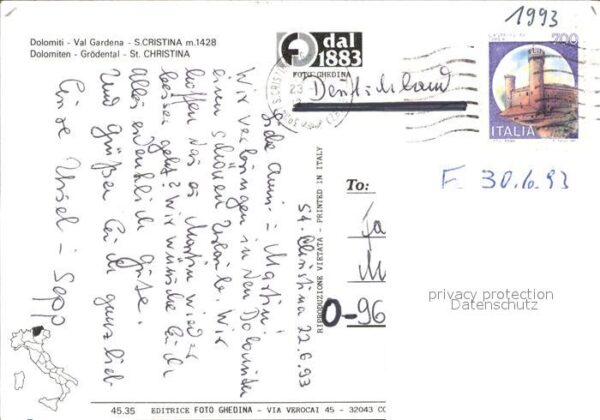 1993
Dolomiti - Val Gardena - S.CRISTINA m.1428
Dolomiten - Grödental - St. CHRISTINA
dal
1883
FOTO GHEDINA
700
ITALIA
Deutschland
F 30.6.93
St. Christina 22.6.93
Martin!
Wir verbringen in den Dolomiten
einen schönen Urlaub. Wir
hoffen das es Martin wieder
besser geht? Wir wünschen Euch
Alles erdenklich Gute.
Und Grüßen Euch ganz lieb
Eure Ursel - Sepp
RIPRODUZIONE VIETATA - PRINTED IN ITALY
To:
O-96
privacy protection
Datenschutz
45.35 EDITRICE FOTO GHEDINA - VIA VEROCAI 45 - 32043